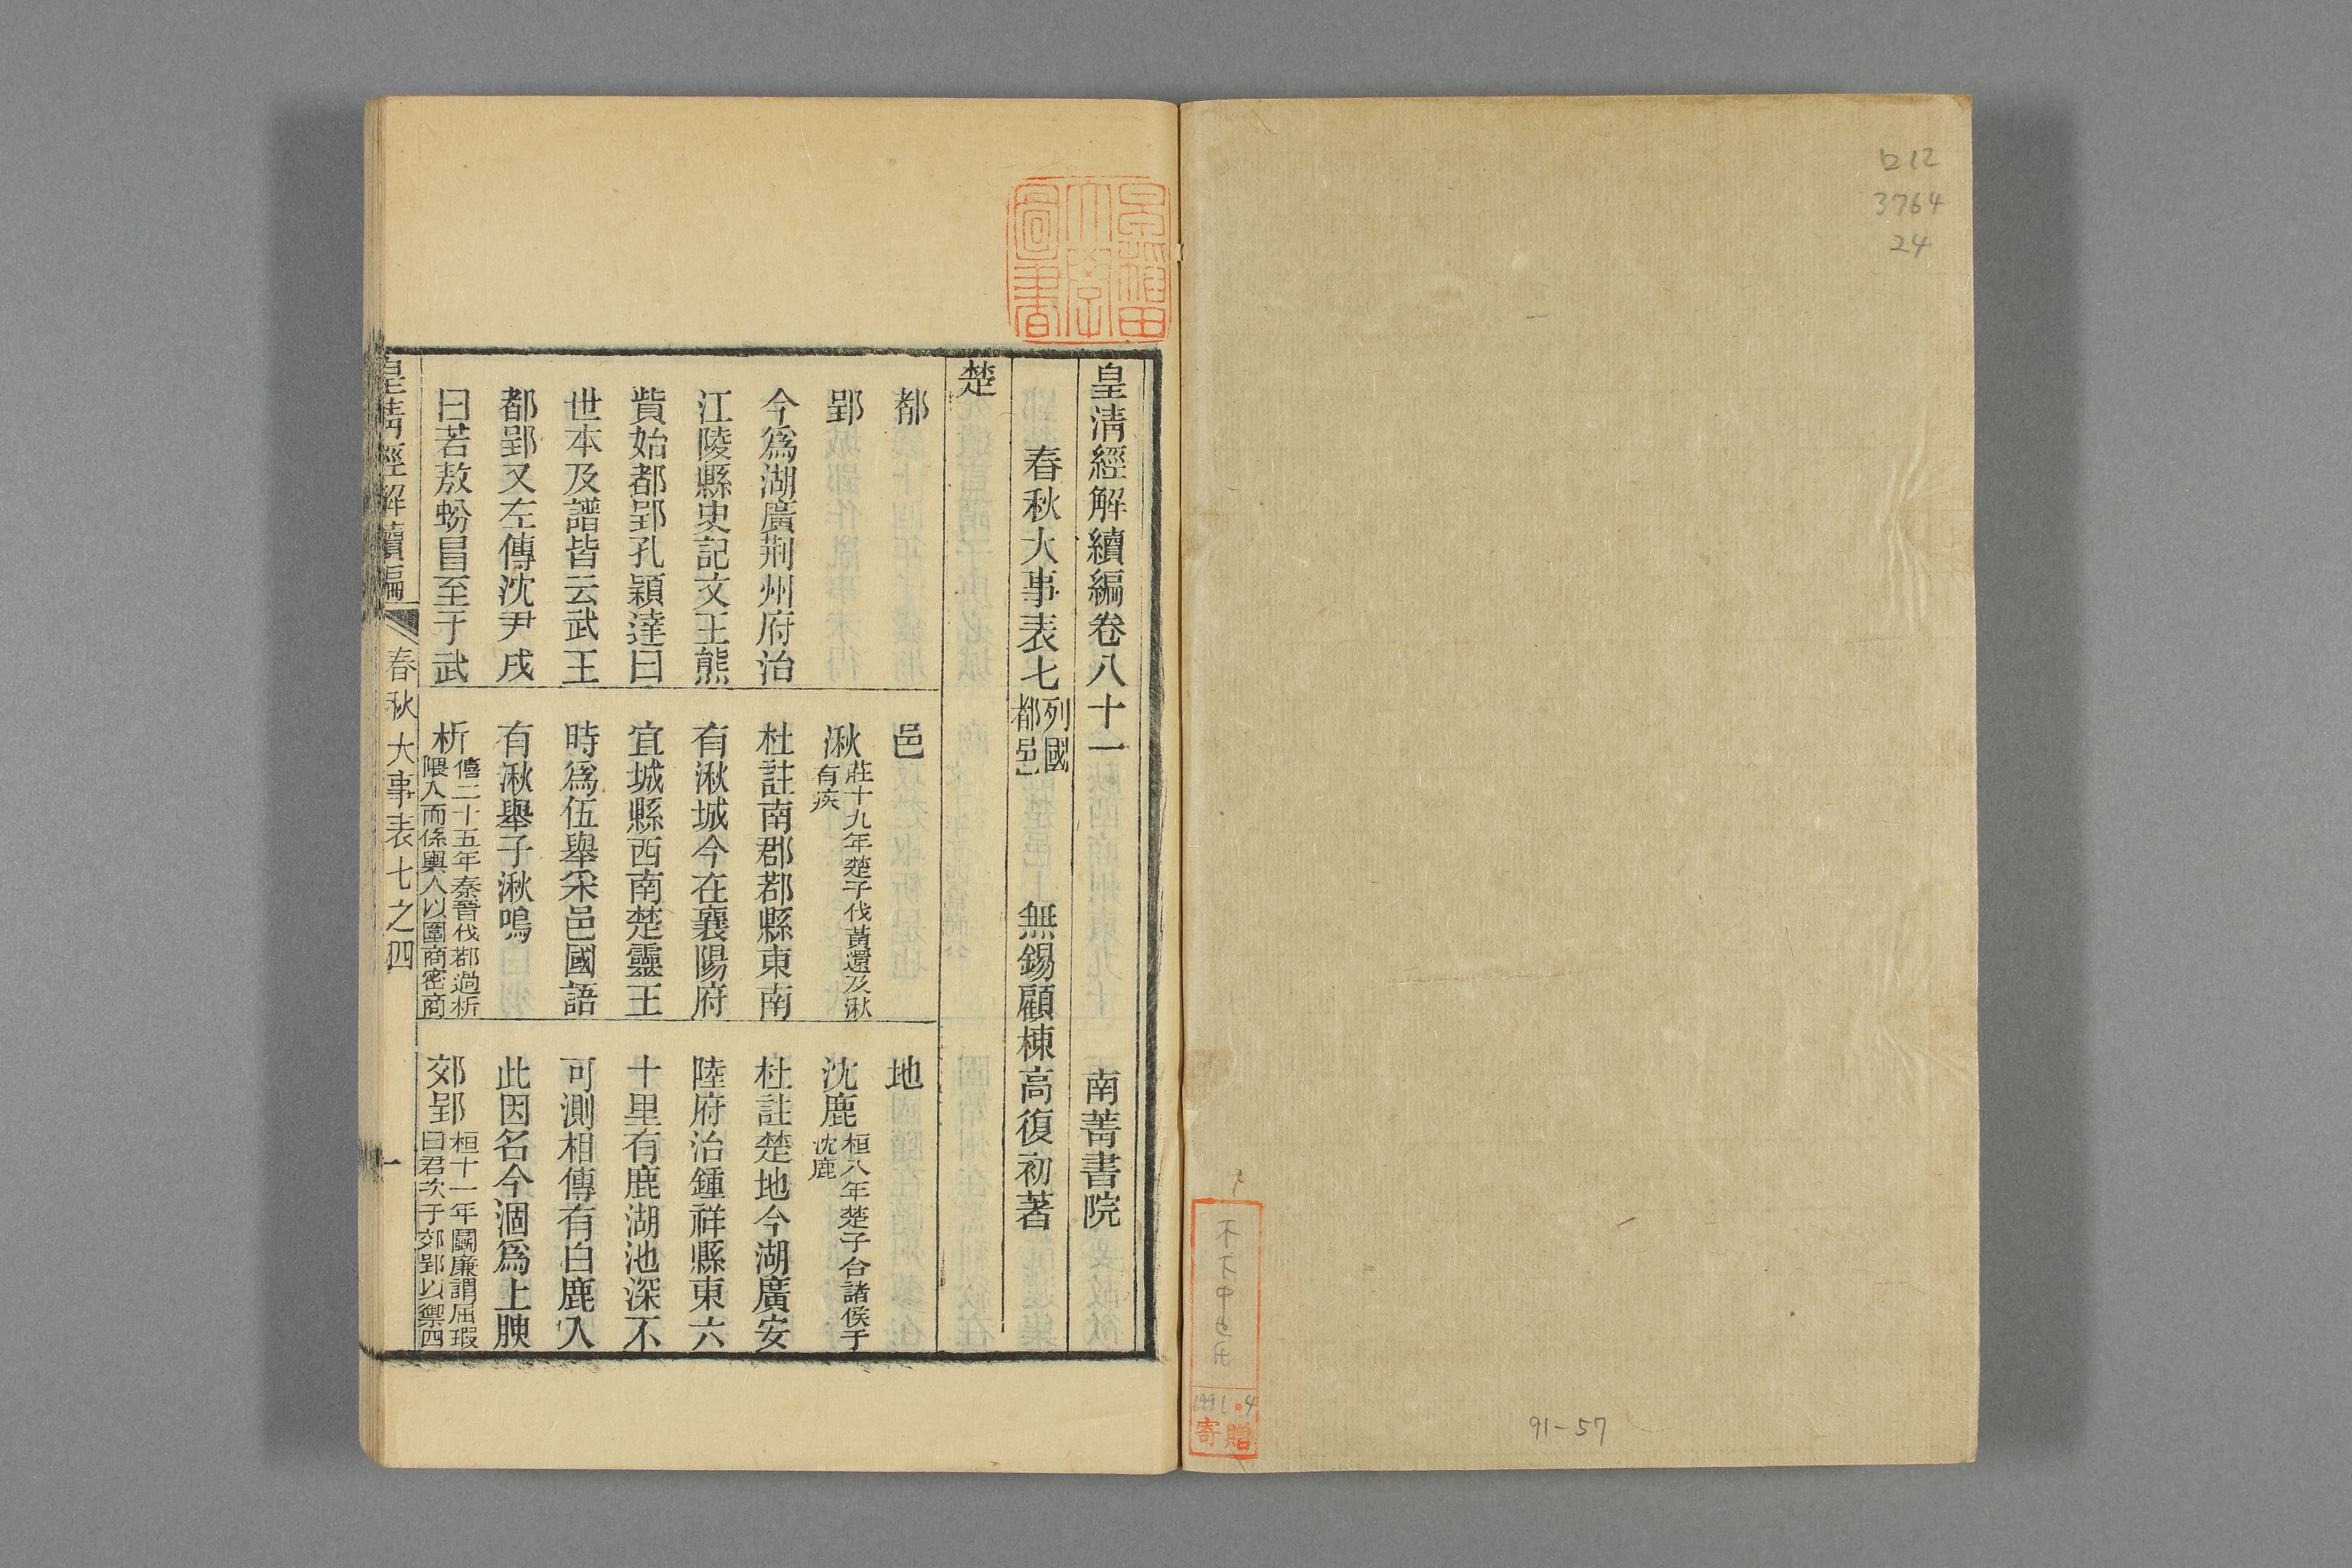 ロ12
3764
24
寄贈
91-57
早稲田大學圖書
皇清經解續編卷八十一
南菁書院
春秋大事表七列國都邑
無錫顧棟高復初著
楚
都
郢
今爲湖廣荆州府治
江陵縣史記文王熊
貲始都郢孔穎達曰
世本及譜皆云武王
都郢又左傳沈尹戌
曰若敖蚡冒至于武
邑
湫莊十九年楚子伐黃還及湫有疾
杜註南郡鄀縣東南
有湫城今在襄陽府
宜城縣西南楚靈王
時爲伍舉采邑國語
有湫舉子湫鳴
析僖二十五年秦晉伐鄀過析隈入而係輿人以圍商密商
地
沈鹿桓八年楚子合諸侯于沈鹿
杜註楚地今湖廣安
陸府治鍾祥縣東六
十里有鹿湖池深不
可測相傳有白鹿入
此因名今涸爲上腴
郊郢桓十一年鬬廉謂屈瑕曰君次于郊郢以禦四
皇清經解續編
春秋大事表七之四
一